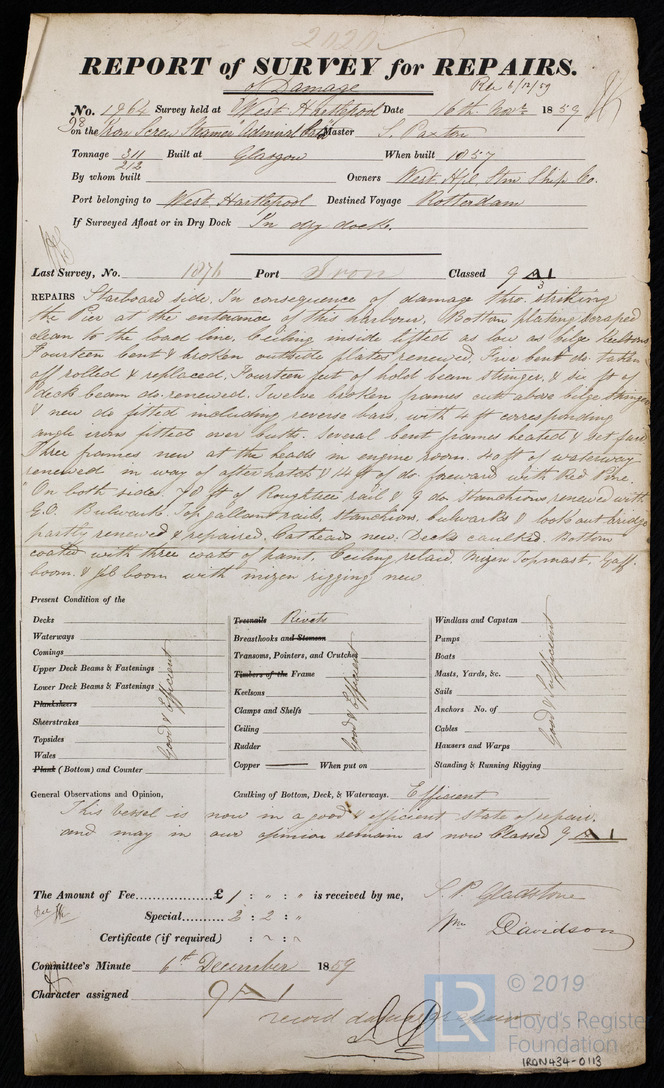 2020
REPORT of SURVEY for REPAIRS.
of Damage Rec 6/12/59
No. 1964 Survey held at West Hartlepool Date 16th Novr 1859
98 on the Iron Screw Steamer "Admiral Master S. Paxton
Tonnage 311 Built at Glasgow When built 1857
212
By whom built Owners West Hpl Stm Ship Co.
Port belonging to West Hartlepool Destined Voyage Rotterdam
If Surveyed Afloat or in Dry Dock In dry dock.
Last Survey, No. 1876 Port Iron Classed 9 A 1
3
REPAIRS Starboard side, In consequence of damage thro. striking
the Pier at the entrance of this harbour, Bottom plating scraped
clean to the load line, Ceiling inside lifted as low as bilge Keelsons
Fourteen bent & broken outside plates renewed, Five bent do. taken
off rolled & replaced, Fourteen feet of hold beam stringer, & six ft of
deck beam do. renewed. Twelve broken frames cutt above bilge stringer
& new do fitted including reverse bars, with 4 ft corresponding
angle irons fitted over butts. Several bent frames heated & set fair
Three frames new at the heads in engine room. 40 ft of waterway
renewed in way of after hatch & 14 ft of do. forward with Red Pine.
On both sides. 70 ft of Roughtree rail & 9 do stanchions renewed with
E.O. Bulwarks. Top gallant rails, stanchions, bulwarks & look out bridge
partly renewed & repaired. Catheads new. Decks caulked. Bottom
coated with three coats of paint. Ceiling relaid. Mizen Topmast, Gaff
boom, & Jib boom with mizen rigging new
Present Condition of the
Decks
Waterways
Comings
Upper Deck Beams & Fastenings
Lower Deck Beams & Fastenings
Planksheers
Sheerstrakes
Topsides
Wales
Plank (Bottom) and Counter
Good & Efficient
Treenails Rivets
Breasthooks and Stemson
Transoms, Pointers, and Crutches
Timbers of the Frame
Keelsons
Clamps and Shelfs
Ceiling
Rudder
Copper When put on
Good & Efficient
Windlass and Capstan
Pumps
Boats
Masts, Yards, &c.
Sails
Anchors No. of
Cables
Hawsers and Warps
Standing & Running Rigging
Good & Efficient
General Observations and Opinion, Caulking of Bottom, Deck, & Waterways. Efficient
This Vessel is now in a good & efficient state of repair,
and may in our opinion remain as now Classed 9 A 1
The Amount of Fee £ 1 : " : " is received by me, S. P. Gladstone
Special 2 : 2 : " Wm Davidson
Certificate (if required) : :
Committee's Minute 6th December 1859
Character assigned 9 A 1
record damage repairs
LR
© 2019
Lloyd's Register
Foundation
IRON434-0113